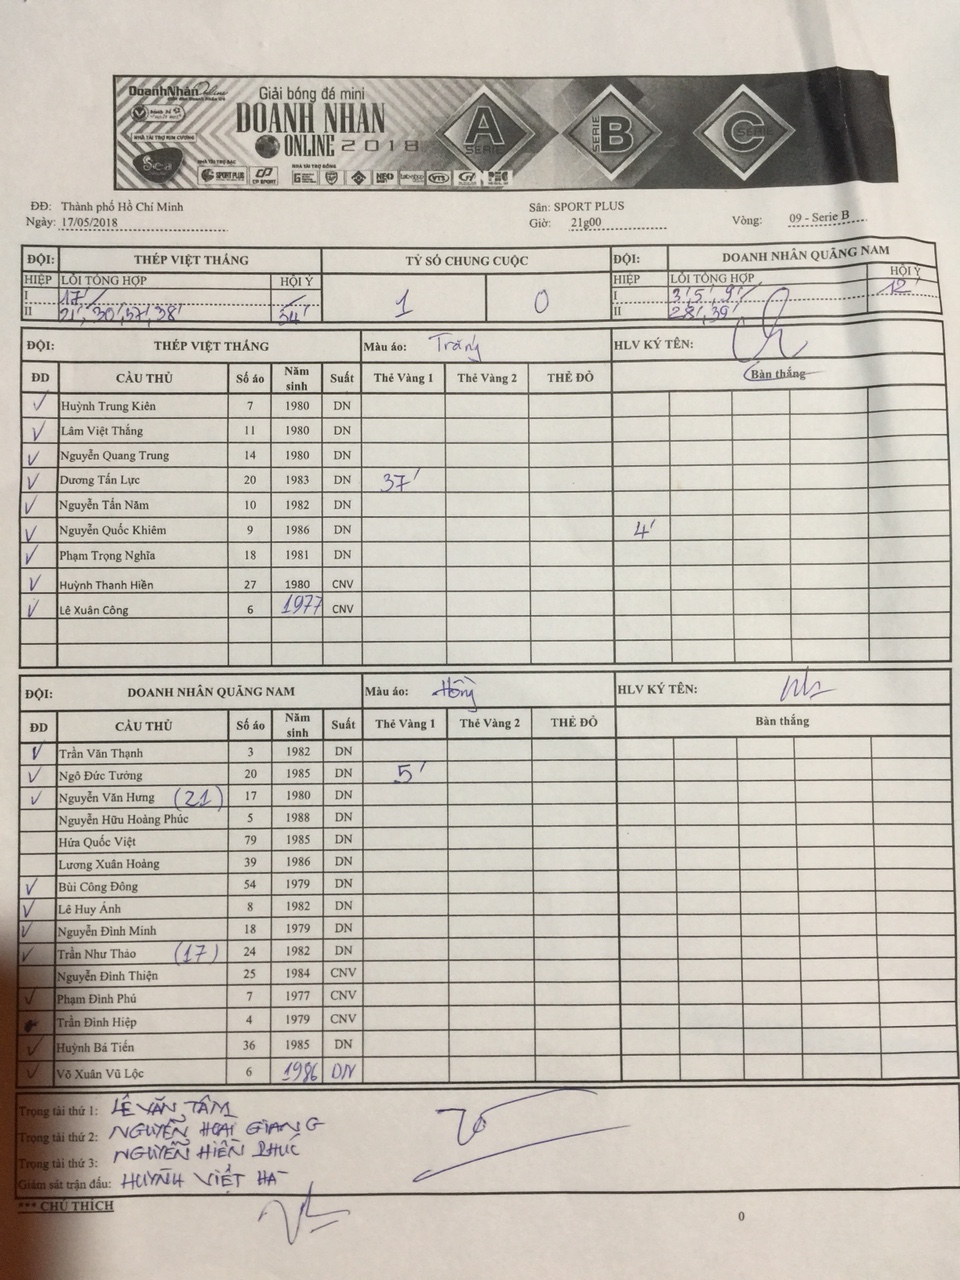 DoanhNhânOnline
Giải bóng đá mini
DOANH NHÂN
ONLINE 2018
NHÀ TÀI TRỢ KIM CƯƠNG
Sea
NHÀ TÀI TRỢ BẠC
NHÀ TÀI TRỢ ĐỒNG
SPORT PLUS
CP SPORT
A SERIE
SERIE B
C SERIE
ĐĐ: Thành phố Hồ Chí Minh Sân: SPORT PLUS
Ngày: 17/05/2018 Giờ: 21g00 Vòng: 09 - Serie B
ĐỘI: THÉP VIỆT THẮNG TỶ SỐ CHUNG CUỘC ĐỘI: DOANH NHÂN QUẢNG NAM
HIỆP LỖI TỔNG HỢP HỘI Ý 1 0 HIỆP LỖI TỔNG HỢP HỘI Ý
I 17' I 3', 5', 9' 12'
II 21', 30', 37', 38' 34' II 28', 39'
ĐỘI: THÉP VIỆT THẮNG Màu áo: Trắng HLV KÝ TÊN:
ĐD CẦU THỦ Số áo Năm sinh Suất Thẻ Vàng 1 Thẻ Vàng 2 THẺ ĐỎ Bàn thắng
Huỳnh Trung Kiên 7 1980 DN
Lâm Việt Thắng 11 1980 DN
Nguyễn Quang Trung 14 1980 DN
Dương Tấn Lực 20 1983 DN 37'
Nguyễn Tấn Năm 10 1982 DN
Nguyễn Quốc Khiêm 9 1986 DN 4'
Phạm Trọng Nghĩa 18 1981 DN
Huỳnh Thanh Hiền 27 1980 CNV
Lê Xuân Công 6 1977 CNV
ĐỘI: DOANH NHÂN QUẢNG NAM Màu áo: Hồng HLV KÝ TÊN:
ĐD CẦU THỦ Số áo Năm sinh Suất Thẻ Vàng 1 Thẻ Vàng 2 THẺ ĐỎ Bàn thắng
Trần Văn Thạnh 3 1982 DN
Ngô Đức Tưởng 20 1985 DN 5'
Nguyễn Văn Hưng (21) 17 1980 DN
Nguyễn Hữu Hoàng Phúc 5 1988 DN
Hứa Quốc Việt 79 1985 DN
Lương Xuân Hoàng 39 1986 DN
Bùi Công Đông 54 1979 DN
Lê Huy Ánh 8 1982 DN
Nguyễn Đình Minh 18 1979 DN
Trần Như Thảo (17) 24 1982 DN
Nguyễn Đình Thiện 25 1984 CNV
Phạm Đình Phú 7 1977 CNV
Trần Đình Hiệp 4 1979 CNV
Huỳnh Bá Tiến 36 1985 DN
Võ Xuân Vũ Lộc 6 1986 DN
Trọng tài thứ 1: LÊ VĂN TÂM
Trọng tài thứ 2: NGUYỄN HOÀI GIANG
Trọng tài thứ 3: NGUYỄN HIỀN PHÚC
Giám sát trận đấu: HUỲNH VIỆT HÀ
*** CHÚ THÍCH
0